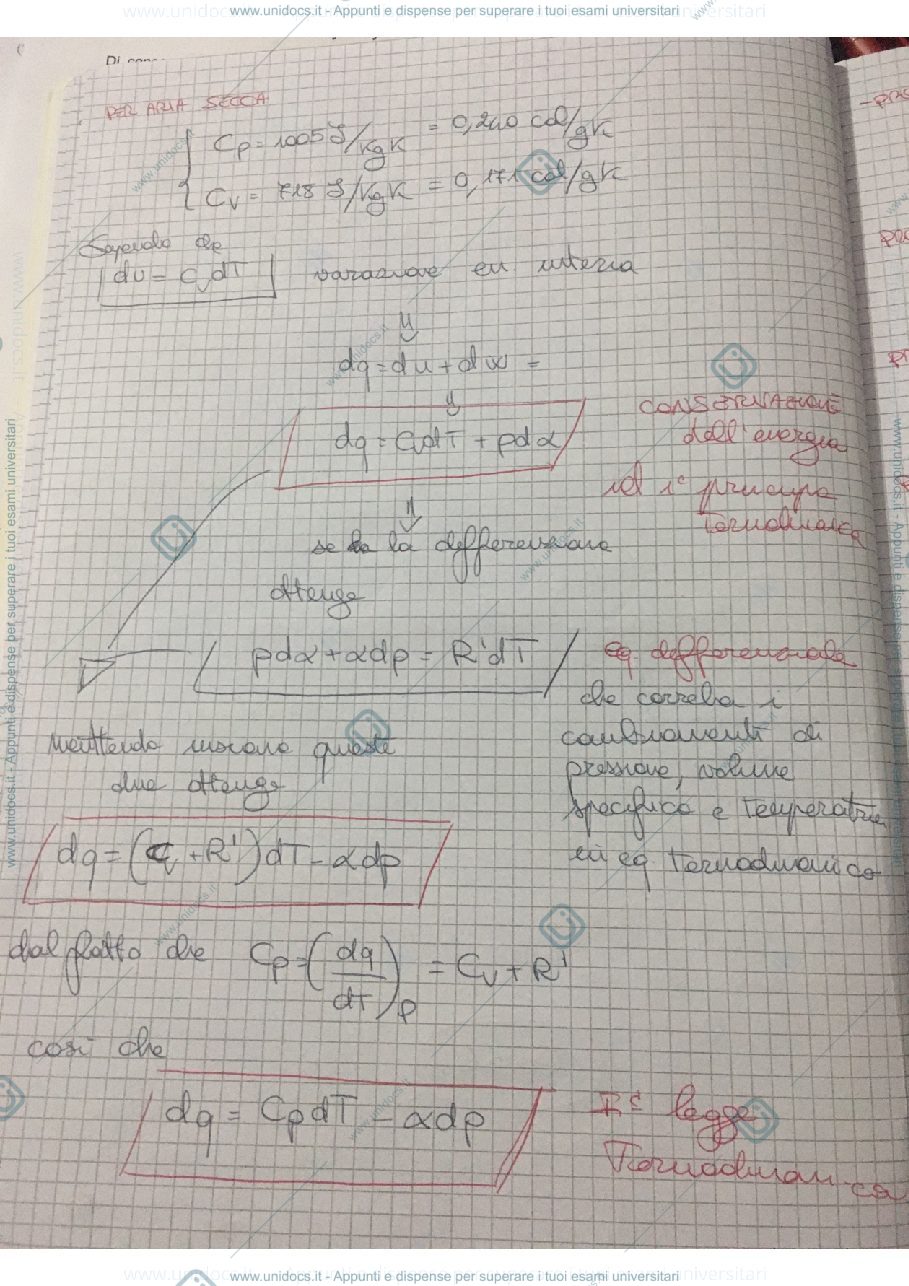 www.unidocs.it - Appunti e dispense per superare i tuoi esami universitari
PER ARIA SECCA
Cp = 1005 J/kgK = 0,240 cal/gK
Cv = 718 J/kgK = 0,171 cal/gK
Sapendo che
du = CvdT variazione en interna
dq = du + dw =
dq = CvdT + pdα
CONSERVAZIONE
dell'energia
nel 1° principio
Termodinamica
se la differenziamo
ottengo
pdα + αdp = R'dT
eq differenziale
che correla i
cambiamenti di
pressione, volume
specifico e Temperatura
in eq Termodinamico
Mettendo insieme queste
due ottengo
dq = (Cv + R')dT - αdp
dal fatto che Cp = (dq/dT)p = Cv + R'
così che
dq = CpdT - αdp
I° legge
Termodinamica
www.unidocs.it - Appunti e dispense per superare i tuoi esami universitari